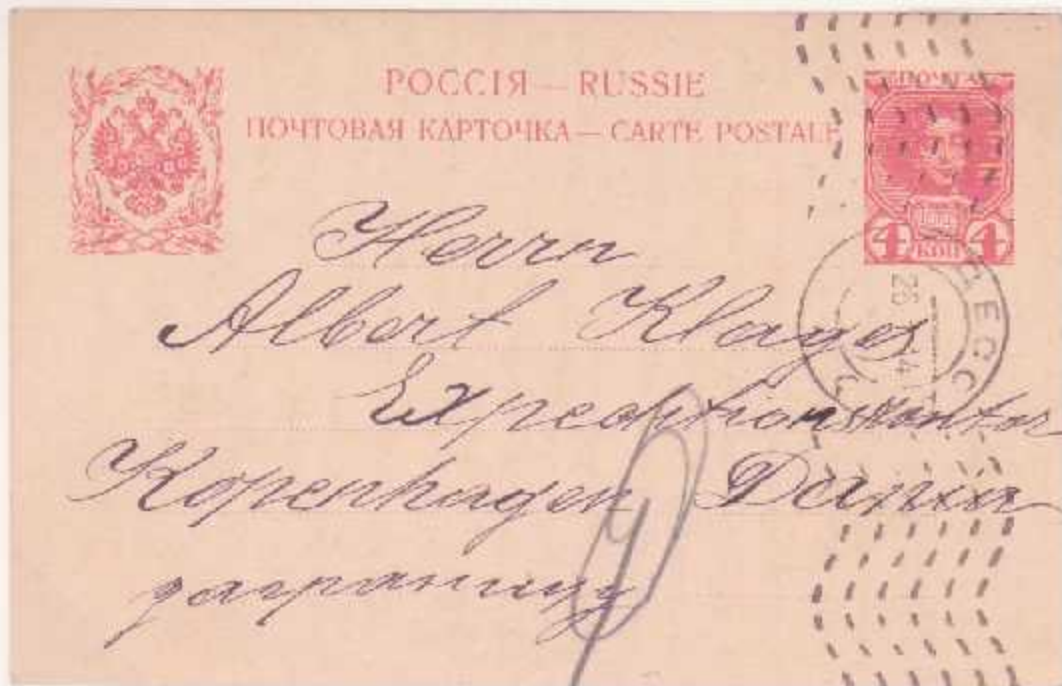 РОССІЯ — RUSSIE
ПОЧТОВАЯ КАРТОЧКА — CARTE POSTALE
ПОЧТА
4 КОП 4
ОДЕССА
26
14
Herrn
Albert Klages
Expeditionskontor
Kopenhagen Dania
заграницу